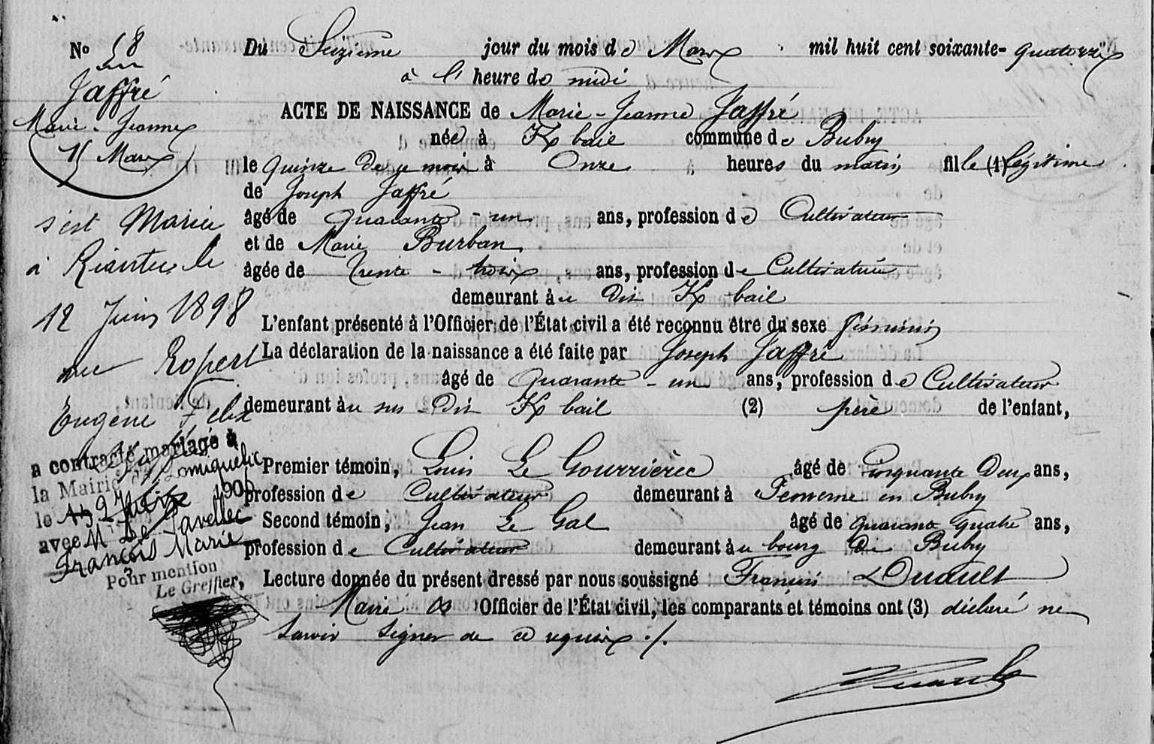 No 58
Jaffré
Marie-Jeanne
15 Mars
s'est Mariée
à Riantec le
12 Juin 1898
avec Ropert
Eugène Félix
a contracté mariage à
la Mairie de Locmiquélic
le 1906
avec M Le Savellec
François Marie
Pour mention
Le Greffier,
Du Seizième jour du mois de Mars mil huit cent soixante-quatorze
à l'heure de midi
ACTE DE NAISSANCE de Marie-Jeanne Jaffré
née à K bail commune de Bubry
le quinze de ce mois à Onze heures du matin fille (1) légitime
de Joseph Jaffré
âgé de Quarante-un ans, profession de Cultivateur
et de Marie Burban
âgée de Trente-trois ans, profession de Cultivatrice
demeurant au dit K bail
L'enfant présenté à l'Officier de l'État civil a été reconnu être du sexe féminin
La déclaration de la naissance a été faite par Joseph Jaffré
âgé de Quarante-un ans, profession de Cultivateur
demeurant au sus-dit K bail (2) père de l'enfant,
Premier témoin, Louis Le Gourriérec âgé de Cinquante Deux ans,
profession de Cultivateur demeurant à en Bubry
Second témoin, Jean Le Gal âgé de quarante quatre ans,
profession de Cultivateur demeurant au bourg de Bubry
Lecture donnée du présent dressé par nous soussigné François Duault
Maire Officier de l'État civil, les comparants et témoins ont (3) déclaré ne
savoir signer de ce requis ./.
Duault